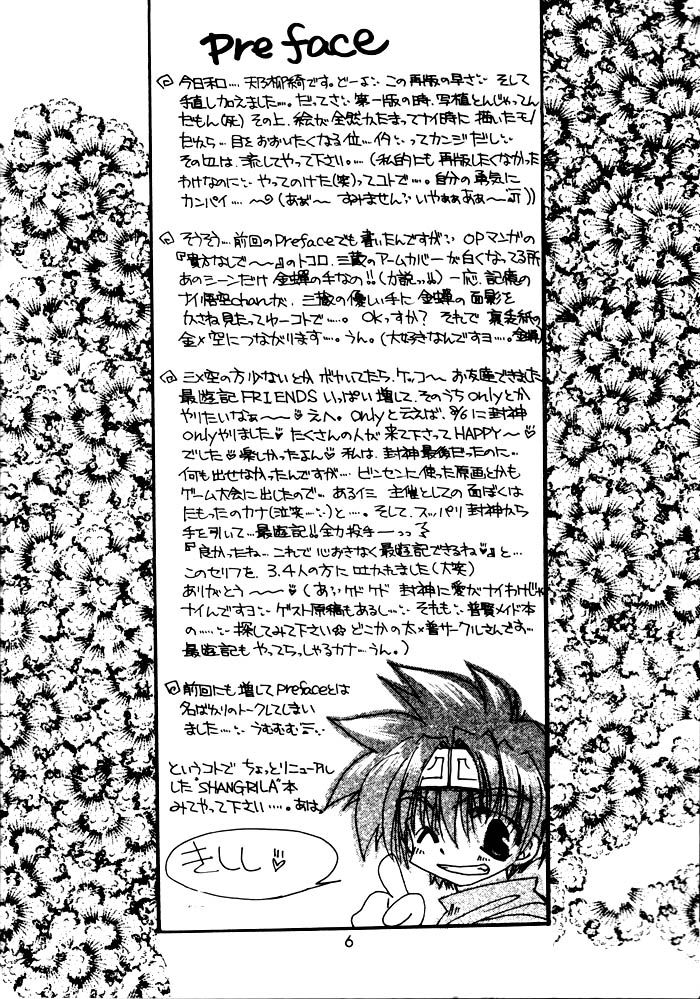 Preface
今日和…. 天乃柳綺です。どーよ この再版の早さ そして
手直し加えました…。だってさ 第一版の時、写植とんじゃってん
だもん(死) その上、絵が全然かたまってナイ時に描いたモノ
だから… 目をおおいたくなる位… 今 ってカンジだし
その辺は、流してやって下さい。…(私的にも再版したくなかった
わけなのに やってのけた(笑)ってコトで…。自分の勇気に
カンパイ…〜(あぁ〜 すみません いやぁぁあぁ〜))
そうそう… 前回のPrefaceでも書いたんですが OPマンガの
『貴方なしで〜〜』のトコロ、三蔵のアームカバーが白くなってる所
あのシーンだけ 金蝉の手なの!!(力説っ!!) 一応、記憶の
ナイ悟空chanが、三蔵の優しい手に 金蝉の面影を
かさね見たってゆーコトで…。OKっすか? それで 裏表紙の
金×空につながります…。うん。(大好きなんですヨ…。金蝉)
三×空の方少ないとか ボヤいてたら、ケッコ〜 お友達できました
最遊記FRIENDS いっぱい増して、そのうち onlyとか
やりたいなぁ〜〜♡ えへ。onlyと云えば、8/6に封神
onlyやりました♡ たくさんの人が来て下さってHAPPY〜♡
でした♡ 楽しかったよん♡ 私は、封神最後だったのに…
何も出せなかったんですが… ビンセンに使った原画とかも
ゲーム大会に出したので… あるイミ 主催としての面ぼくは
たもったのカナ(泣笑…)と…。そして、スッパリ封神から
手を引いて… 最遊記!!全力投手ーっっ
『良かったね… これで心おきなく最遊記できるね♡』と…
このセリフを、3.4人の方に吐かれました(大笑)
ありがとう〜〜♡ (あっ ケド ケド 封神に愛がナイわけじゃ
ナイんですヨ ゲスト原稿もあるし… それも 普賢メイド本
の…… 探してみて下さい☆ どこかの太×普サークルさんです…
最遊記も やってらっしゃるカナ…うん。)
前回にも増してPrefaceとは
名ばかりのトークしてしまい
ました…. うむむむ
というコトで ちょっとリニューアル
した "SHANGRILA"本
みてやって下さい…。あは。
きししし♡
6